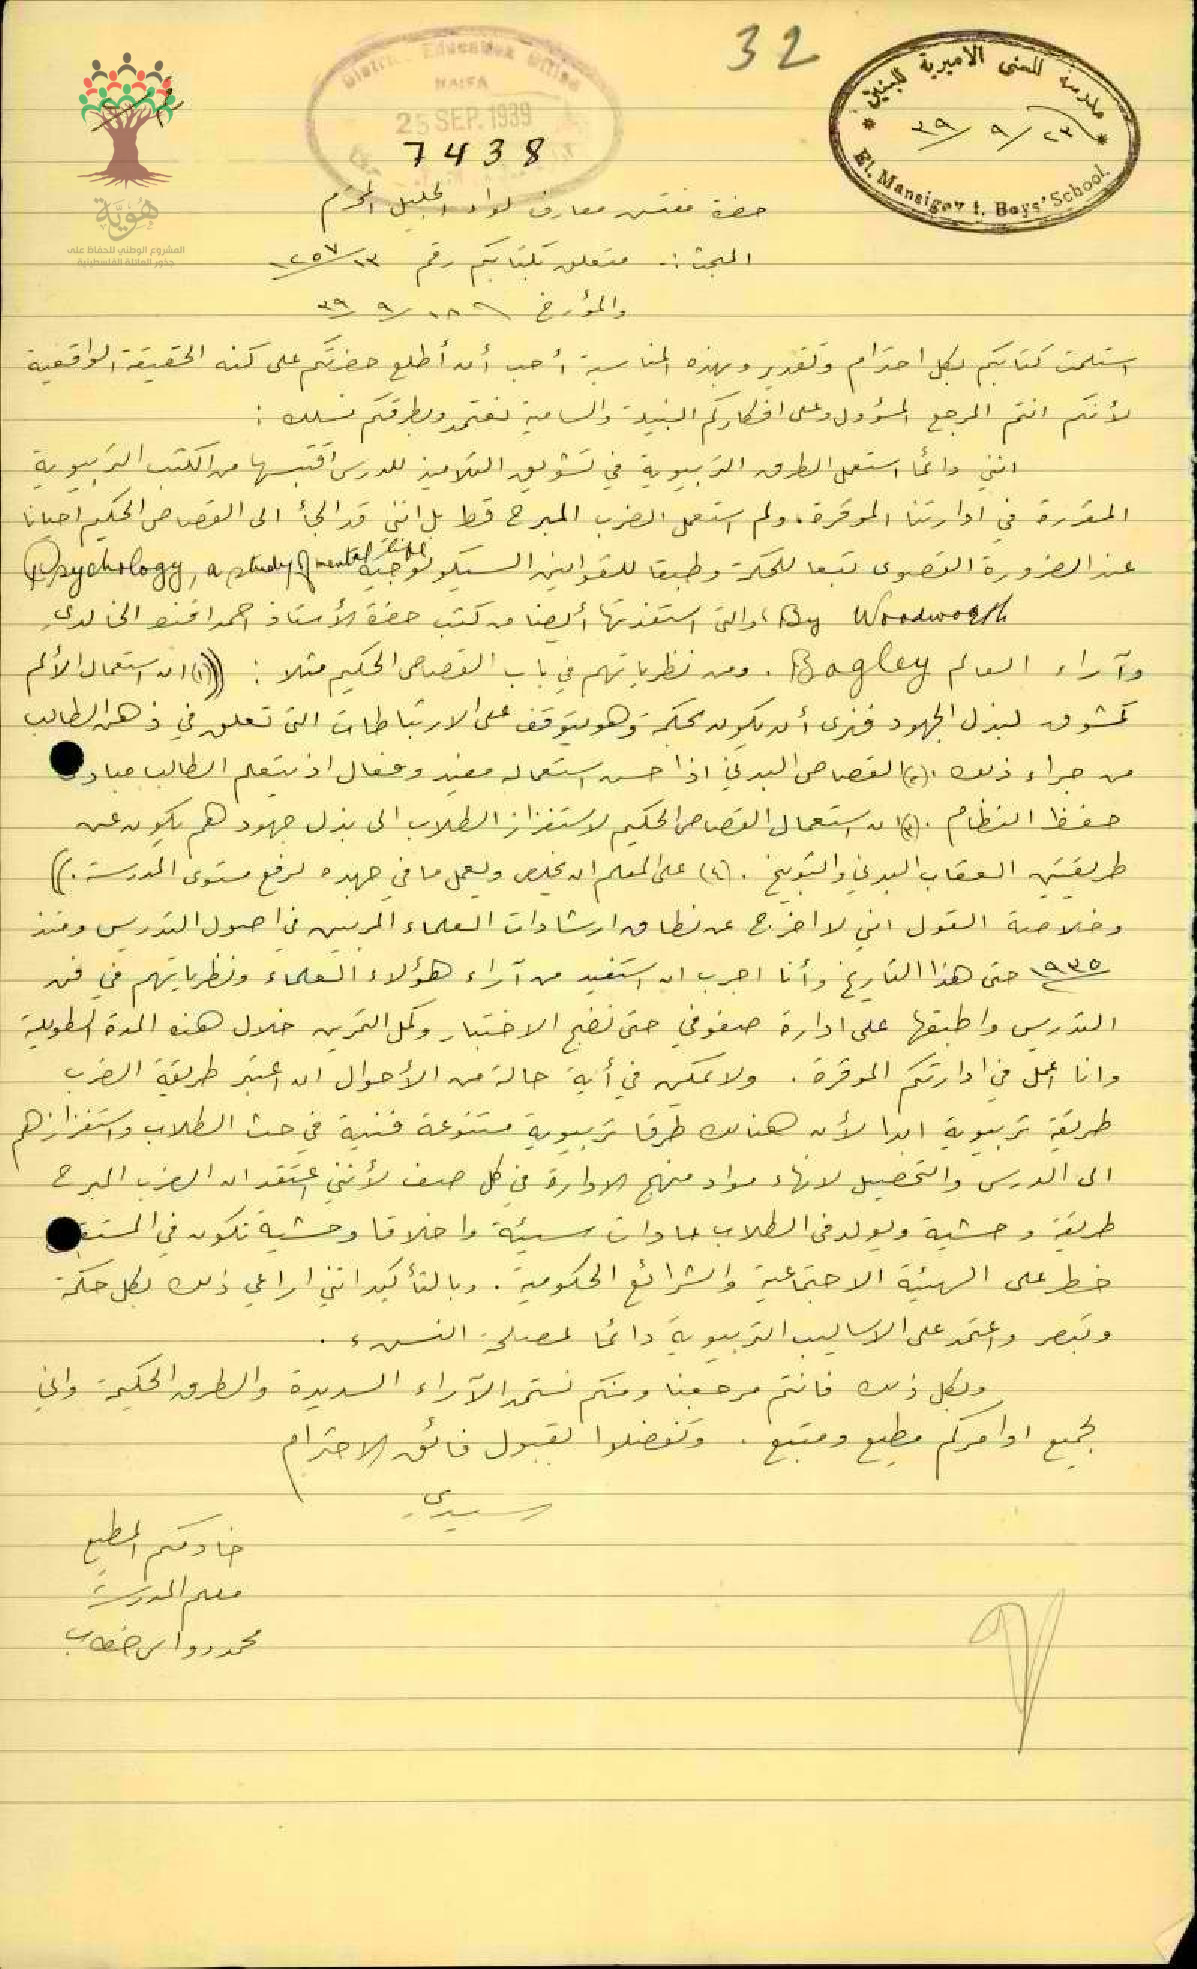 32
District Education Office
HAIFA
25 SEP. 1939
7438
مدرسة المنسي الاميرية للبنين
٢٣/ ٩/ ٣٩
El. Mansi Gov t. Boys' School.
هُوِيَّة
المشروع الوطني للحفاظ على
جذور العائلة الفلسطينية
حضرة مفتش معارف لواء الجليل المحترم
المبحث :. متعلق بكتابكم رقم ١٣/ ١٢٥٧
والمؤرخ ١٨/ ٩/ ٣٩
استلمت كتابكم بكل احترام وتقدير وبهذه المناسبة أحب أن أطلع حضرتكم على كنه الحقيقة الواقعية
لأنكم انتم المرجع المسؤول وعلى افكاركم النبيلة والسامية نعتمد وبطرقكم نسلك :
انني دائما استعمل الطرق التربيوية في تشويق التلاميذ للدرس اقتبسها من الكتب التربيوية
المقررة في ادارتنا الموقرة، ولم استعمل الضرب المبرح قط بل انني قد الجأ الى القصاص الحكيم احيانا
عند الضرورة القصوى تبعا للحكمة وطبقا للقوانين السيكولوجية (Psychology, a study of mental life
By Woodworth) والتي استفدتها أيضا من كتب حضرة الأستاذ احمد افندي الخالدي
وآراء العالم Bagley . ومن نظرياتهم في باب القصاص الحكيم مثلا : ((١) ان استعمال الألم
كمشوق لبذل الجهود فنرى أن يكون بحكمة وهو يتوقف على الارتباطات التي تعلق في ذهن الطالب
من جراء ذلك . (٢) القصاص البدني اذا حسن استعماله مفيد وفعال اذ يتعلم الطالب مبادئ
حفظ النظام . (٣) ان استعمال القصاص الحكيم لاستفزاز الطلاب الى بذل جهودهم يكون عن
طريقتين العقاب البدني والتوبيخ . (٤) على المعلم ان يخلص ويعمل ما في جهده لرفع مستوى المدرسة .)
وخلاصة القول اني لا اخرج عن نطاق ارشادات العلماء المربين في اصول التدريس ومنذ
١٩٣٥ حتى هذا التاريخ وأنا اجرب ان استفيد من آراء هؤلاء العلماء ونظرياتهم في فن
التدريس واطبقها على ادارة صفوفي حتى نضج الاختبار وكمل التمرين خلال هذه المدة الطويلة
وانا اعمل في ادارتكم الموقرة . ولا يمكن في أية حالة من الأحوال ان اعتبر طريقة الضرب
طريقة تربيوية ابدا لأن هنالك طرقا تربيوية متنوعة فنية في حث الطلاب واستفزازهم
الى الدرس والتحصيل لانهاء مواد منهج الادارة في كل صف لأنني اعتقد ان الضرب المبرح
طريقة وحشية ويولد في الطلاب عادات سيئة واخلاقا وحشية تكون في المستقبل
خطر على الهيئة الاجتماعية والشرائع الحكومية . وبالتأكيد انني اراعي ذلك بكل حكمة
وتبصر واعتمد على الاساليب التربيوية دائما لمصلحة النشء .
وبكل ذلك فانتم مرجعنا ومنكم نستمد الآراء السديدة والطرق الحكيمة واني
لجميع اوامركم مطيع ومتبع . وتفضلوا بقبول فائق الاحترام
سيدي
خادمكم المطيع
معلم المدرسة
محمد رواس خطاب